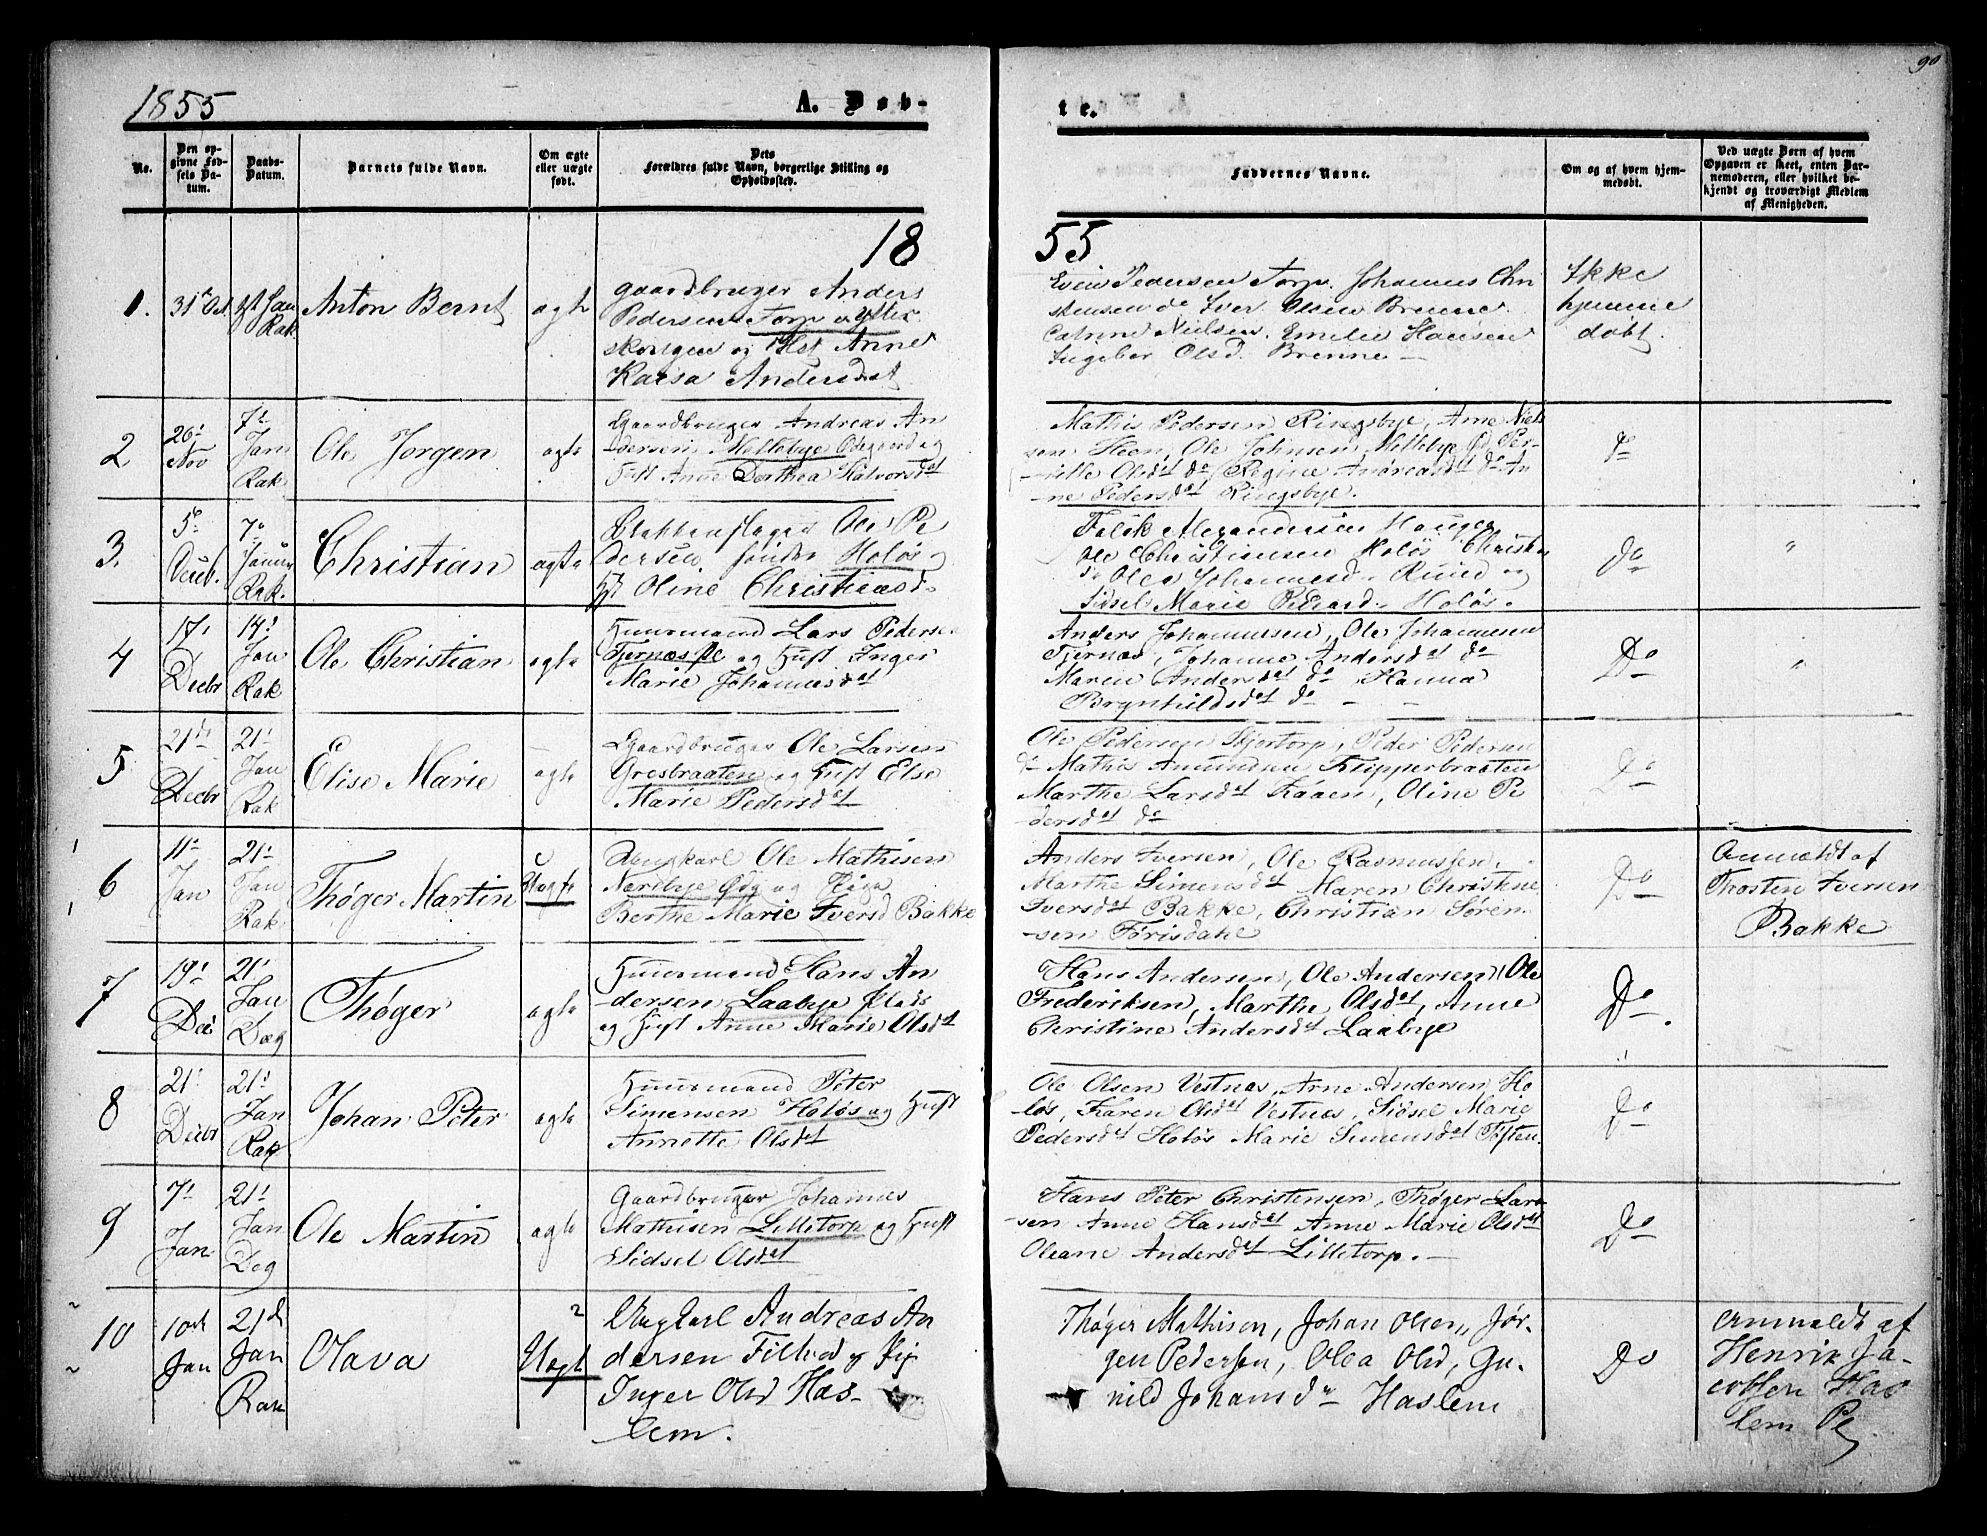 1855
A. Døb-
te.
90
No.
Den op-
givne Fød-
sels Da-
tum.
Daabs-
Datum.
Barnets fulde Navn.
Om ægte
eller uægte
født.
Dets
Forældres fulde Navn, borgerlige Stilling og
Opholdssted.
Faddernes Navne.
Om og af hvem hjem-
medøbt.
Ved uægte Børn af hvem
Opgaven er skeet, enten Bar-
nemoderen, eller hvilket be-
kjendt og troværdigt Medlem
af Menigheden.
18
55
1.
31te Oct
Jan
Rak
Anton Bernt
ægte
Gaardbruger Anders
Pedersen Torp
og Hst Anne
Karsa Andersdat
Pedersen Torp. Johannes Chri
stensen do Iver Olsen Brenne.
Catrine Nielsen. Emelie Hansen
Ingebor Olsd. Brenne
Ikke
hjemme
døbt.
2
26'
Nov
7'
Jan
Rak.
Ole Jørgen
ægte
Gaardbruger Andreas An
dersen, Mellebye Ødegaard og
Hust Anne Dorthea Halvorsdat
Mathis Pedersen Ringsbye, Arne Niel
sen Heen, Ole Johnsen Mellebye Ød, Per-
nille Olsdat do, Regine Andreasdat do An
ne Pedersdat Ringsbye.
do
3.
5
Decb.
7
Januar
Rak.
Christian
ægte
Klokkenslager Ole Pe
dersen Holøs og
Hst Oline Christiansd.
Falck Alexandersen Hauger
Ole Christiansen Holøs Christian
do Olea Johannesd. Ruud og
Sidsel Marie Pedersd. Holøs.
do
"
4
17'
Decbr
14'
Jan
Rak
Ole Christian
ægte
Huusmand Lars Pedersen
Tjernæs Pl og Hust Inger
Marie Johannesdat
Anders Johannesen, Ole Johannesen
Tjernæs, Johanne Andersdat do
Maren Andersdat do Hanna
Brynhildsdat do
Do
"
5
21de
Decbr
21'
Jan
Rak
Elise Marie
ægte
Gaardbruger Ole Larsen
Gresbraaten og Hust Elise
Marie Pedersdat
Ole Pedersen Bjertorp, Peder Pedersen
do Mathis Amundsen Knipperbraaten
Marthe Larsdat Kaaen, Oline Pe
dersdat do
Do
6
11'
Jan
21'
Jan
Rak
Thøger Martin
Uægte
Ungkarl Ole Mathisen
Nordbye Ødg og Piga
Berthe Marie Iversd Bakke
Anders Iversen, Ole Rasmussen,
Marthe Simensdat Maren Christine
Iversdat Bakke, Christian Søren-
sen Tørisdahl
Do
Anmældt af
Thosten Iversen
Bakke
7
19'
Dec
21'
Jan
Dæg
Thøger
ægte
Huusmand Hans An
dersen Laabye Plads
og Hust Anne Marie Olsdat
Hans Andersen, Ole Andersen, Ole
Frederiksen, Marthe Olsdat, Anne
Christine Andersdat Laabye
Do
8
21'
Decbr
21'
Jan
Rak
Johan Peter
ægte
Huusmand Peter
Simensen Holøs og Hust
Annette Olsdat
Ole Olsen Vestnæs, Arne Andersen Ho
løs, Karen Olsdat Vestnæs, Sidsel Marie
Pedersdat Holøs Marie Simensdat Toften.
Do
9
7'
Jan
21'
Jan
Deg
Ole Martin
ægte
Gaardbruger Johannes
Mathisen Lilletorp og Hust
Sidsel Olsdat
Hans Peter Christensen, Thøger Lar
sen Anne Hansdat Anne Marie Olsdat
Oleane Andersdat Lilletorp.
Do
10
10de
Jan
21d
Jan
Rak
Olava
2
Uægte
Ungkarl Andreas An
dersen og Pig
Inger Olsd Has-
lem.
Thøger Mathisen, Johan Olsen, Jør-
gen Pedersen, Olea Olsd, Gu-
nild Johansd Haslem
Do
Anmældt af
Henrik Ja-
cobsen Has
lem Pe